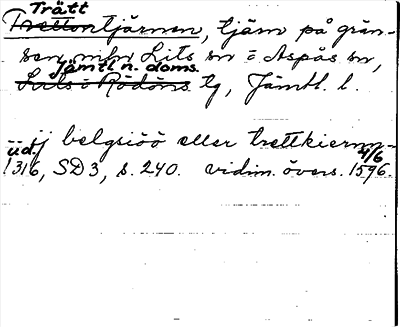 Trätt
Trettontjärnen, tjärn på grän-
sen mln Lits sn o Aspås sn,
Jämtl n. doms.
Lits o Rödöns tg, Jämtl. l.
ij belgsiöö eller trettkiernn-
üd. 4/6
1316, SD3, s. 240. vidim. övers. 1596.